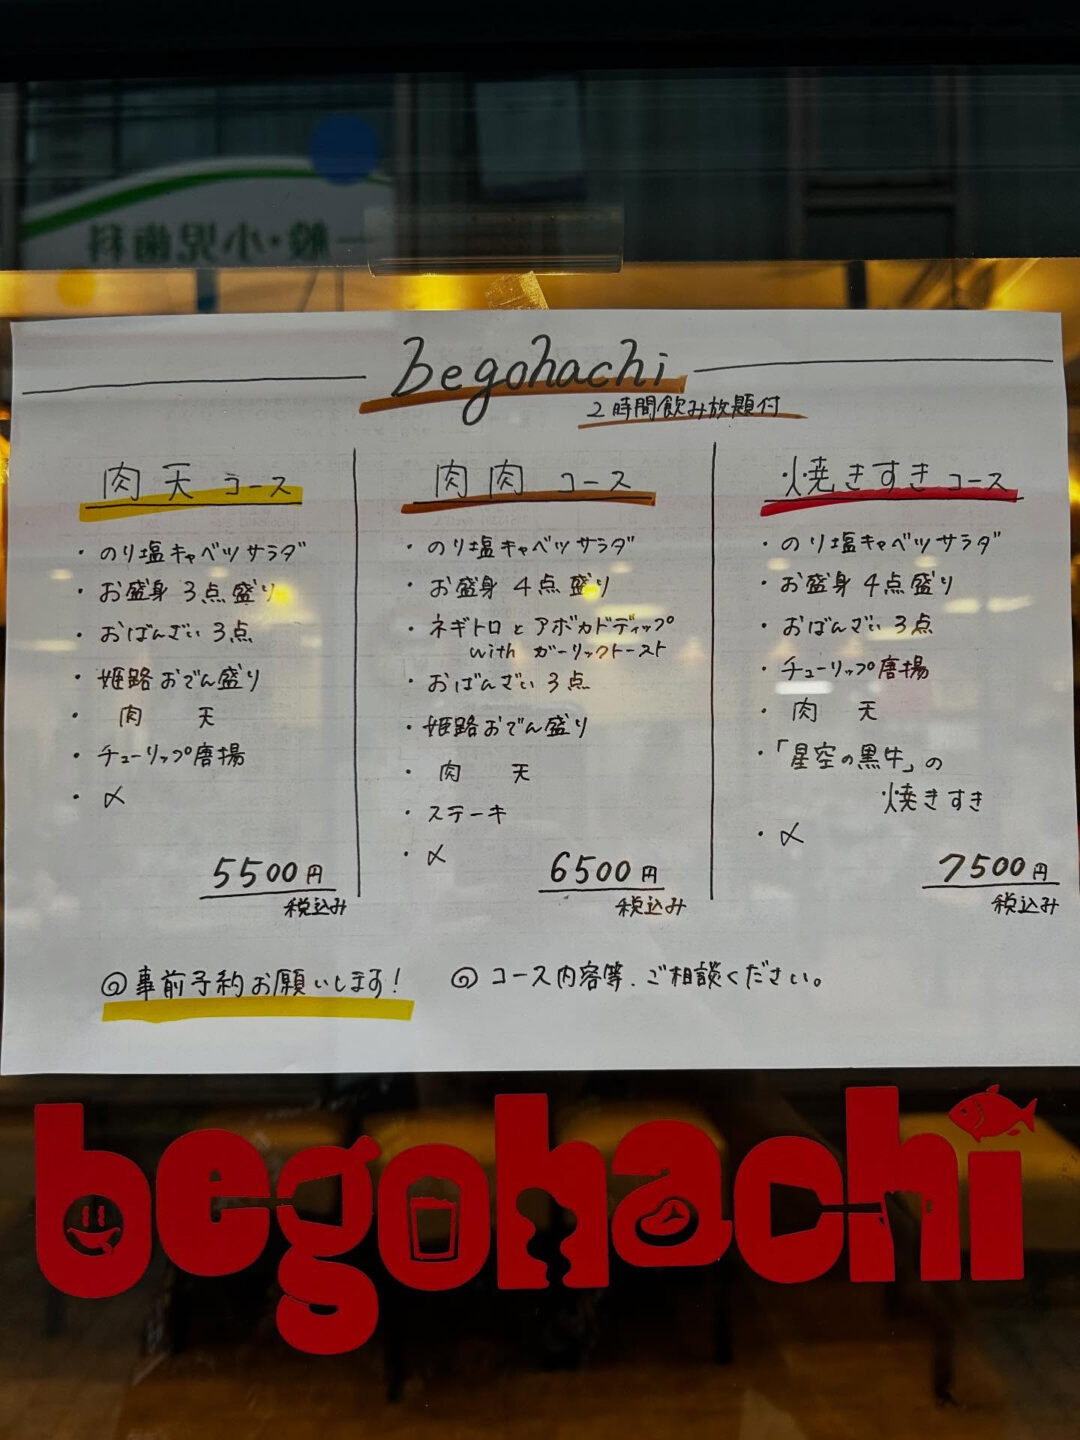 一般・小児歯科
begohachi
2時間飲み放題付
肉天コース
・のり塩キャベツサラダ
・お盛身 3点盛り
・おばんざい3点
・姫路おでん盛り
・肉 天
・チューリップ唐揚
・〆
5500円
税込み
肉肉コース
・のり塩キャベツサラダ
・お盛身 4点盛り
・ネギトロとアボカドディップ
with ガーリックトースト
・おばんざい3点
・姫路おでん盛り
・肉 天
・ステーキ
・〆
6500円
税込み
焼きすきコース
・のり塩キャベツサラダ
・お盛身 4点盛り
・おばんざい3点
・チューリップ唐揚
・肉 天
・「星空の黒牛」の
焼きすき
・〆
7500円
税込み
◎事前予約お願いします!
◎コース内容等、ご相談ください。
begohachi